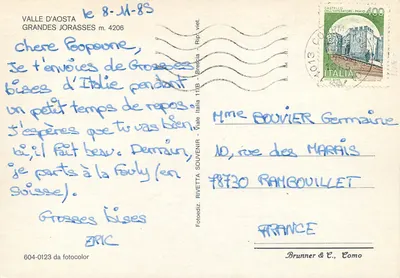 VALLE D'AOSTA
GRANDES JORASSES m. 4206
le 8-11-89
chere Poupoune,
Je t'envoies de Grosses
bises d'Italie pendant
un petit temps de repos.
J'espères que tu vas bien.
ici, il fait beau. Demain,
je parts à la Fouly (en
Suisse).
Grosses bises
ERIC
604-0123 da fotocolor
Fotoediz. RIVETTA SOUVENIR - Viale Italia
400
ITALIA
Mme BOUVIER Germaine
10, rue des MARAIS
78730 RAMBOUILLET
FRANCE
Brunner & C., Como